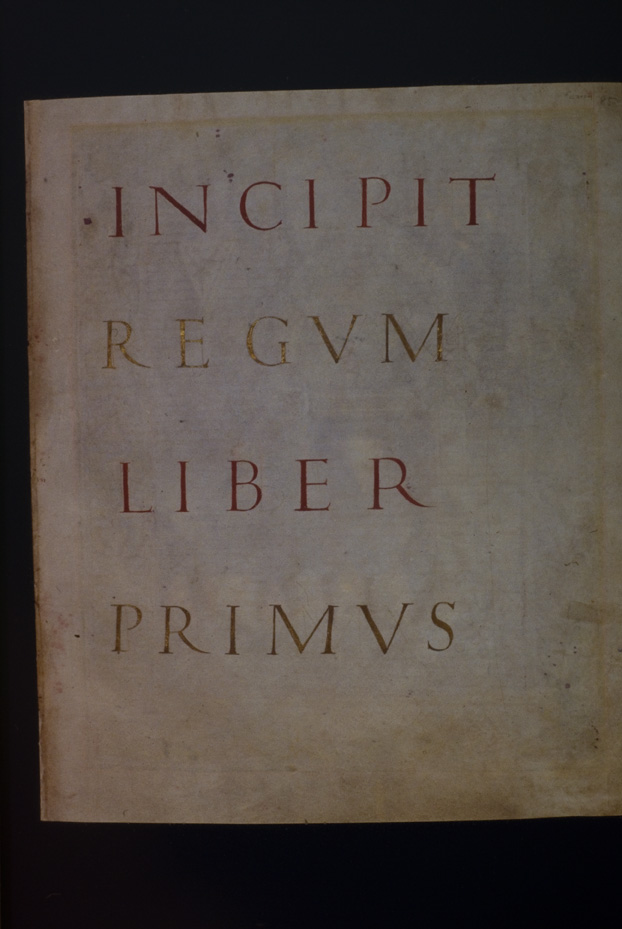 INCIPIT
REGVM
LIBER
PRIMVS